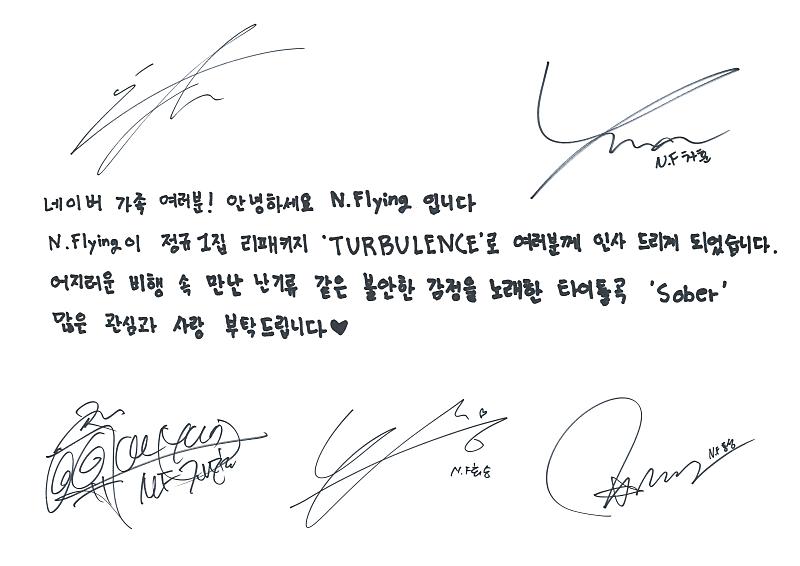 N.F 차훈
네이버 가족 여러분! 안녕하세요 N.Flying 입니다
N.Flying이 정규 1집 리패키지 'TURBULENCE'로 여러분께 인사 드리게 되었습니다.
어지러운 비행 속 만난 난기류 같은 불안한 감정을 노래한 타이틀곡 'Sober'
많은 관심과 사랑 부탁드립니다♥
N.F 회승
N.F 동성